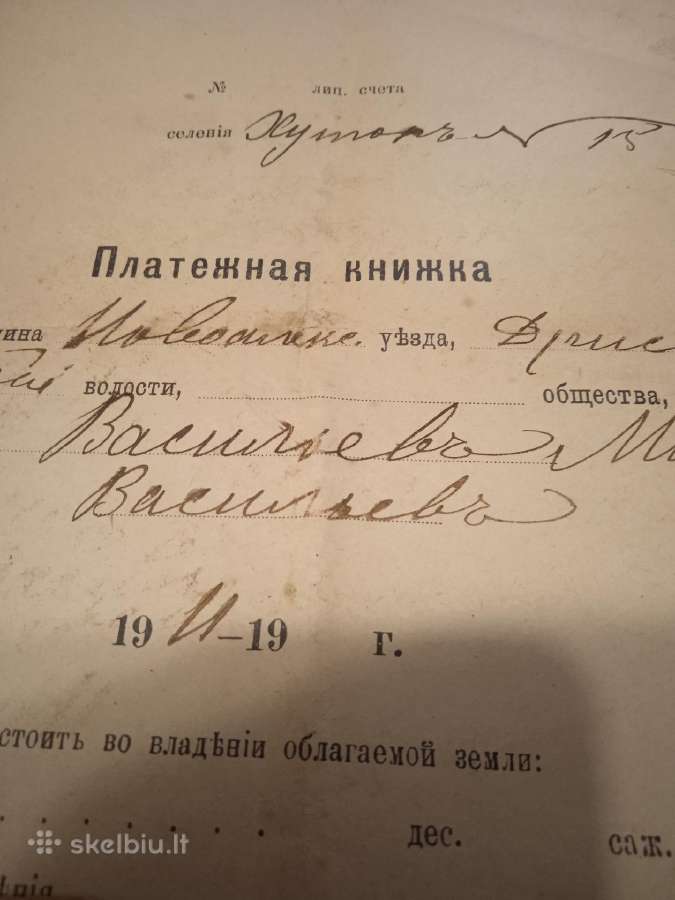 № лиц. счета
селенія Хуторъ 15
Платежная книжка
ина Новоалекс. уѣзда, Дрис
волости, общества,
Васильевъ
Васильевъ
19 11 - 19 г.
стоитъ во владѣніи облагаемой земли:
дес. саж.
skelbiu.lt
ѣнія